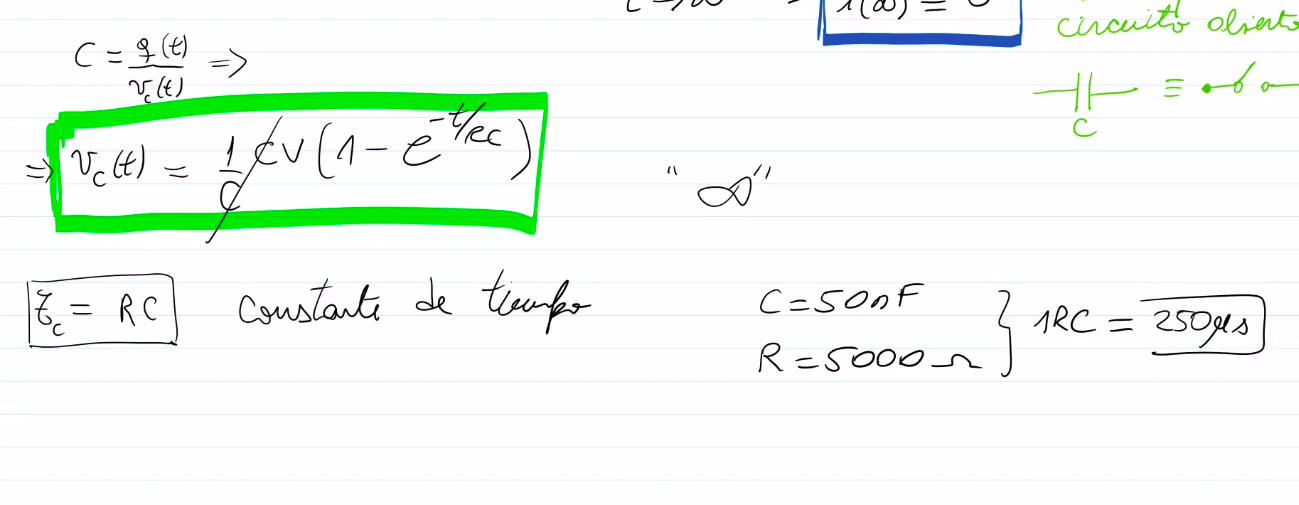 i(∞) = 0
circuito abierto
C = q(t)/v_c(t) ⇒
≡
C
⇒ v_c(t) = 1/C CV (1 − e^(−t/RC))
"∞"
τ_c = RC constante de tiempo
C = 50nF
R = 5000 Ω
1RC = 250μs